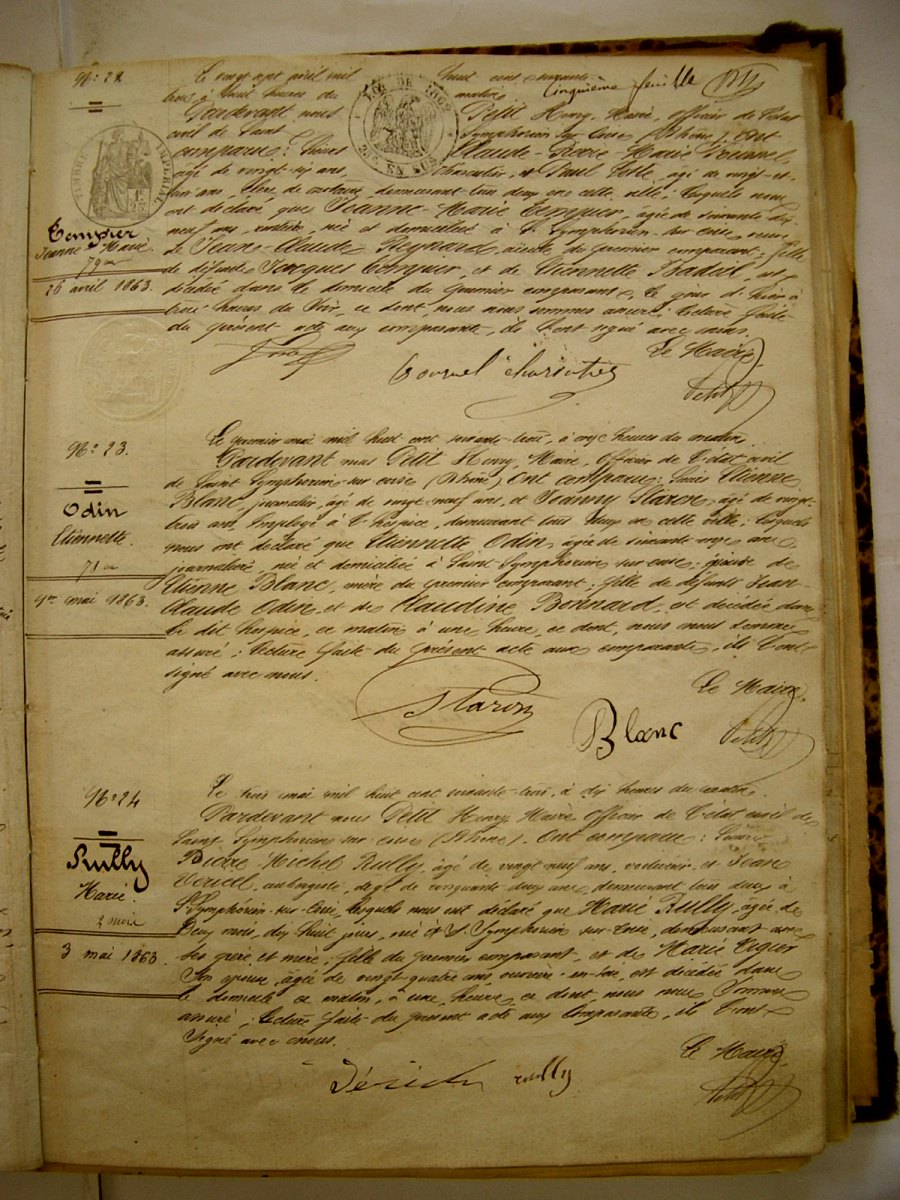 Cinquième feuille
N.º 22.
TIMBRE IMPERIAL
LOI DE 1862
EN SUS
Tempier
Jeanne Marie
79 ans
26 avril 1863.
Le vingt sept avril mil huit cent soixante
trois à huit heures du matin
Pardevant nous Petit Henry, Maire, officier de l'état
civil de Saint Symphorien sur Coise (Rhône), ont
comparu : Sieurs Claude-Marie
agé de vingt-six ans, charcutier, et Paul agé de vingt-et-
un ans, clerc de notaire, demeurant tous deux en cette ville ; lesquels nous
ont déclaré que Jeanne-Marie Tempier, agée de soixante dix
neuf ans, rentière, née et domiciliée à St Symphorien-sur-Coise, veuve
de Jean-Claude aieule du premier comparant ; fille
de défunts Jacques Tempier, et de Etiennette Badoil, est
décédée dans le domicile du premier comparant, le jour d'hier à
trois heures du soir, ce dont, nous nous sommes assuré ; lecture faite
du présent acte aux comparants, ils l'ont signé avec nous.
Le Maire
charcutier
Petit
N.º 23.
Odin
Etiennette.
71 ans
1er mai 1863.
Le premier mai mil huit cent soixante-trois, à onze heures du matin.
Pardevant nous Petit Henry, Maire, officier de l'état civil
de Saint Symphorien-sur-Coise (Rhône). Ont comparu : Sieurs Etienne
Blanc journalier, agé de vingt-neuf ans, et Joanny Staron, agé de vingt-
trois ans, employé à l'hospice, demeurant tous deux en cette ville ; lesquels
nous ont déclaré que Etiennette Odin, agée de soixante-onze ans,
journalière, née et domiciliée à Saint Symphorien-sur-Coise ; épouse de
Etienne Blanc, mère du premier comparant ; fille de défunts Jean-
Claude Odin, et de Claudine Bonnard, est décédée dans
le dit hospice, ce matin à une heure, ce dont, nous nous sommes
assuré ; lecture faite du présent acte aux comparants, ils l'ont
signé avec nous.
Le Maire
Staron
Blanc
Petit
N.º 24
Rully
Marie.
2 mois
3 mai 1863.
Le trois mai mil huit cent soixante-trois, à dix heures du matin.
Pardevant nous Petit Henry Maire officier de l'état civil de
Saint Symphorien-sur-Coise (Rhône). Ont comparu : Sieurs
Pierre Michel Rully, agé de vingt-neuf ans, voiturier, et Jean
aubergiste, agé de cinquante-deux ans, demeurant tous deux à
St Symphorien-sur-Coise, lesquels nous ont déclaré que Marie Rully, agée de
deux mois, dix huit jours, née à St Symphorien-sur-Coise, demeurant avec
ses père et mère ; fille du premier comparant, et de Marie
son épouse, agée de vingt-quatre ans ouvrière-en-soie, est décédée dans
le domicile ce matin, à une heure, ce dont nous nous sommes
assuré ; lecture faite du présent acte aux comparants, ils l'ont
signé avec nous.
Le Maire
rully
Petit